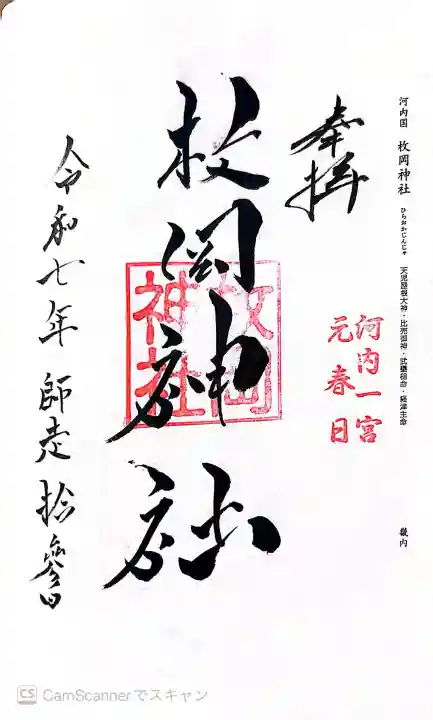 河内国 枚岡神社 ひらおかじんじゃ 天児屋根大神・比売御神・武甕槌命・経津主命 畿内
奉拝
河内一宮
元春日
枚岡神社
枚岡
神社
令和七年 師走 拾参日
CamScannerでスキャン